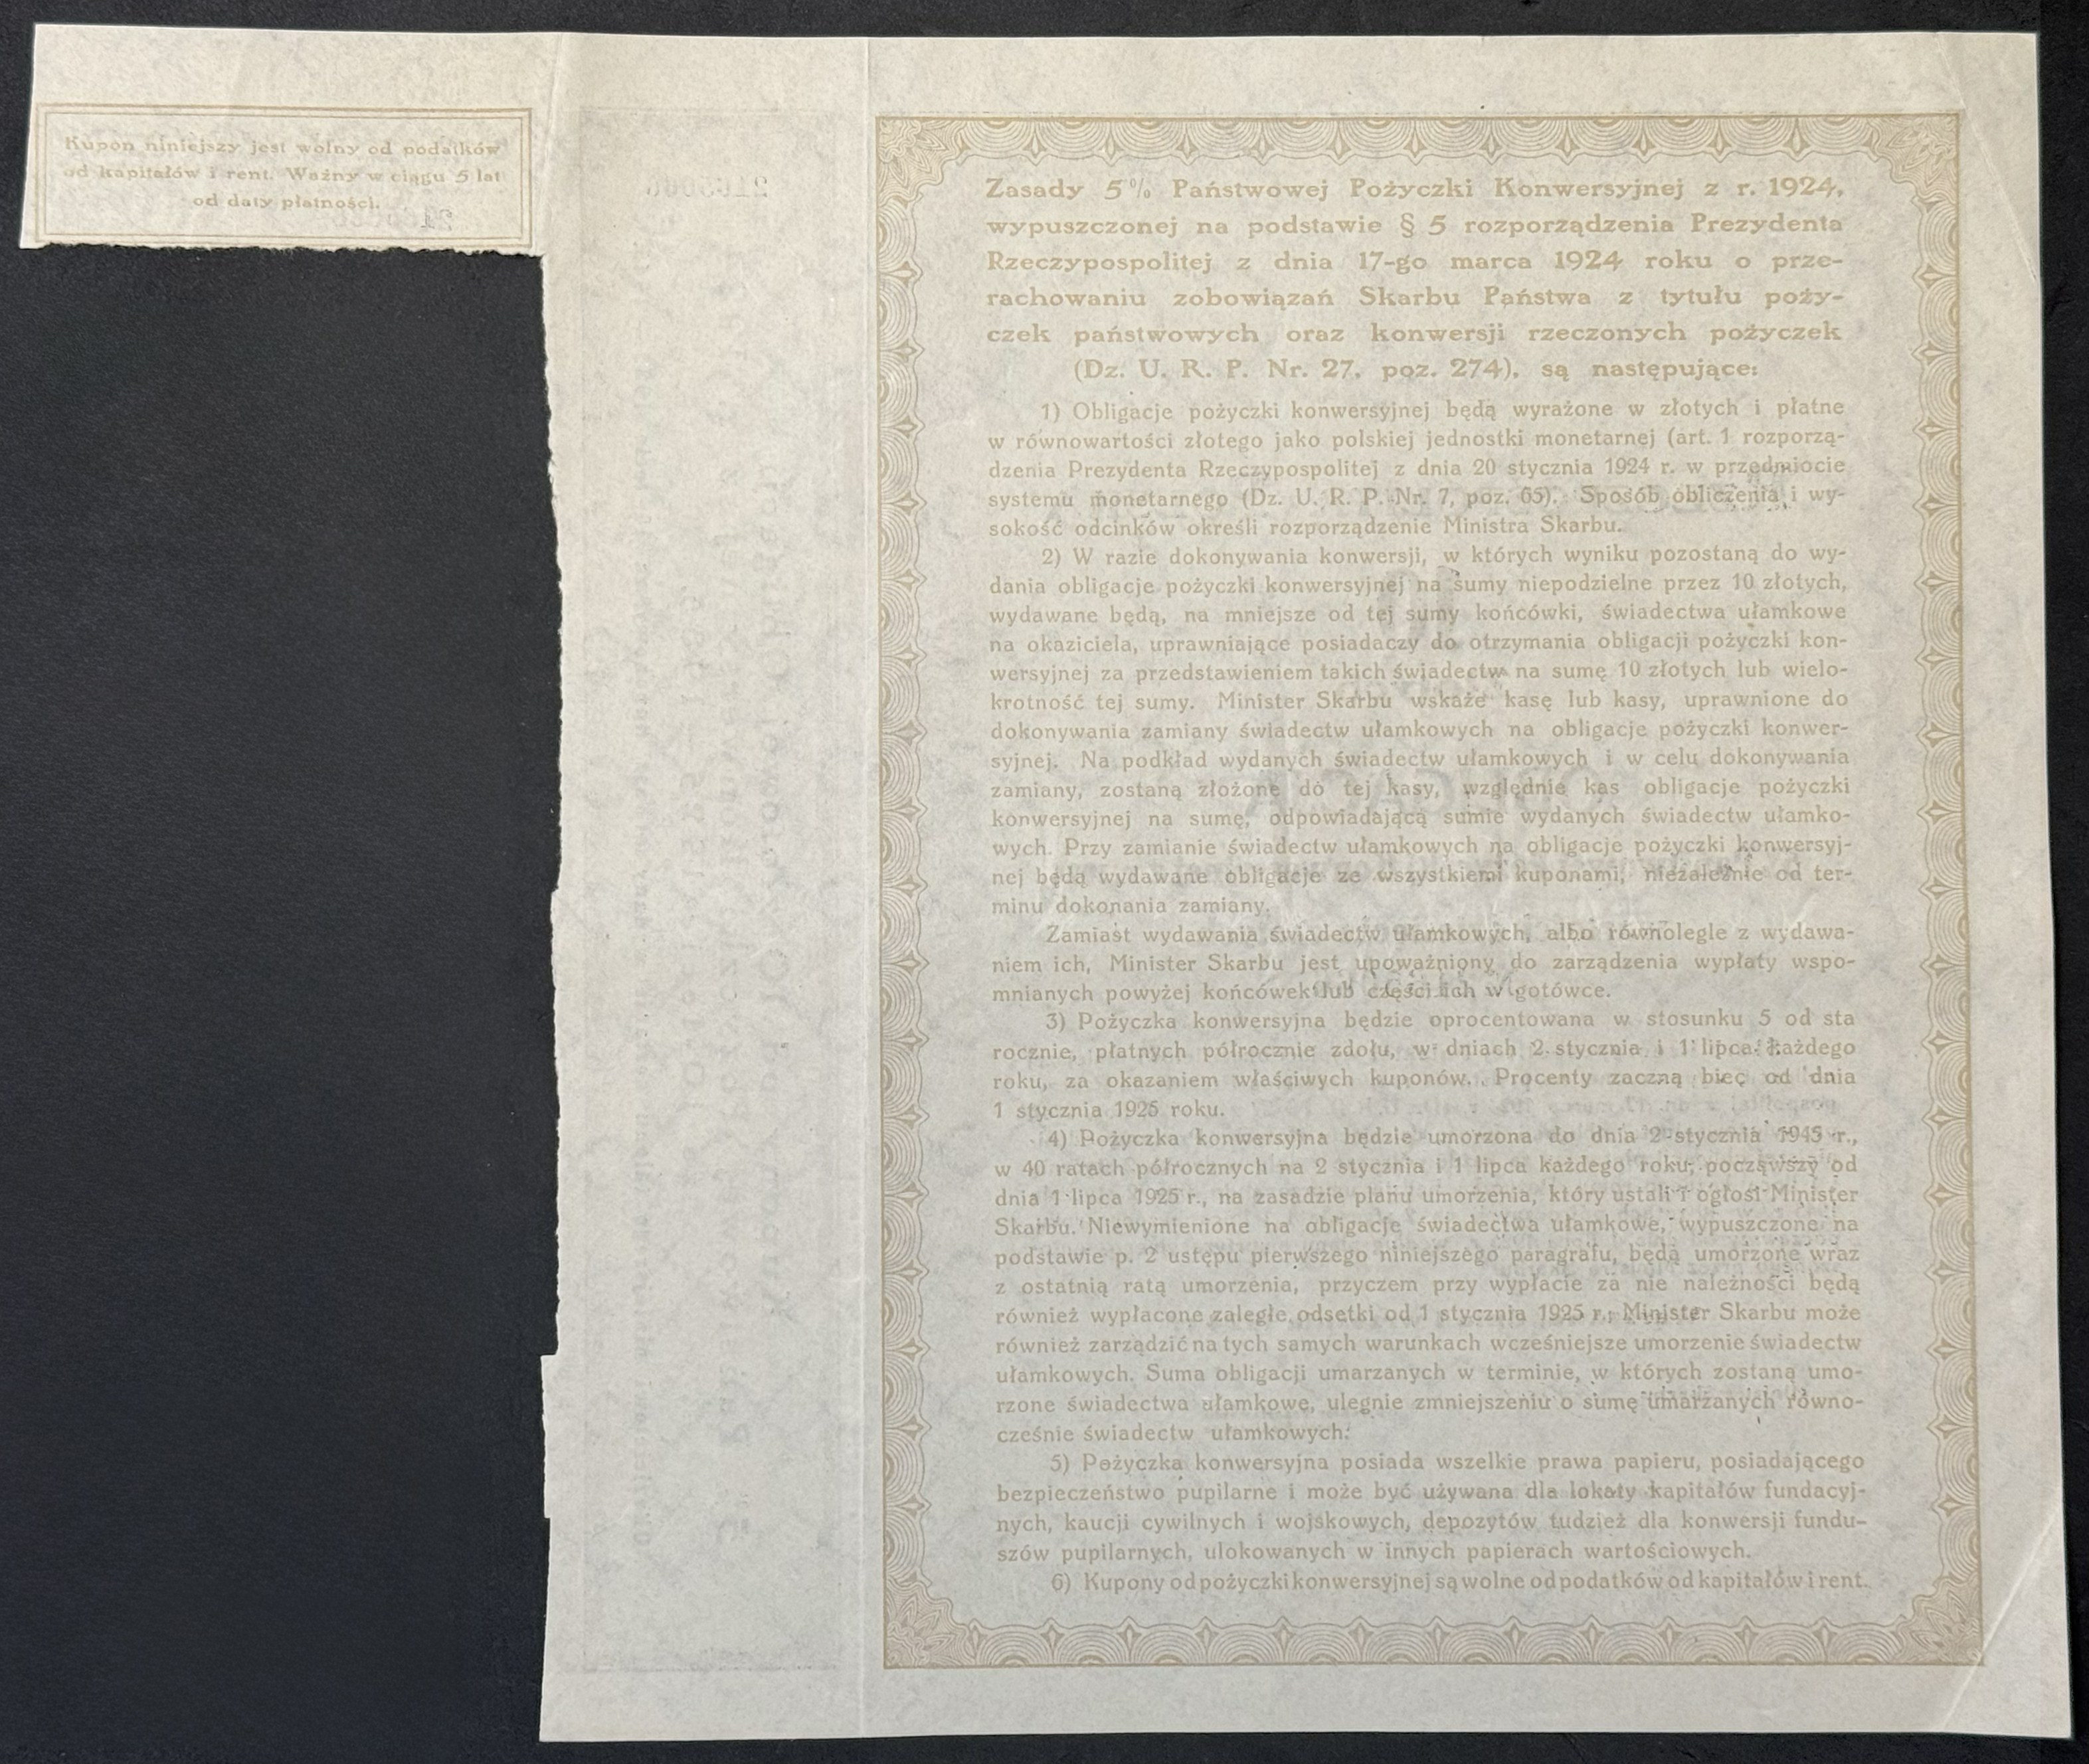 Kupon niniejszy jest wolny od podatków
od kapitałów i rent. Ważny w ciągu 5 lat
od daty płatności.
Zasady 5% Państwowej Pożyczki Konwersyjnej z r. 1924,
wypuszczonej na podstawie § 5 rozporządzenia Prezydenta
Rzeczypospolitej z dnia 17-go marca 1924 roku o prze-
rachowaniu zobowiązań Skarbu Państwa z tytułu poży-
czek państwowych oraz konwersji rzeczonych pożyczek
(Dz. U. R. P. Nr. 27, poz. 274), są następujące:
1) Obligacje pożyczki konwersyjnej będą wyrażone w złotych i płatne
w równowartości złotego jako polskiej jednostki monetarnej (art. 1 rozporzą-
dzenia Prezydenta Rzeczypospolitej z dnia 20 stycznia 1924 r. w przedmiocie
systemu monetarnego (Dz. U. R. P. Nr. 7, poz. 65). Sposób obliczenia i wy-
sokość odcinków określi rozporządzenie Ministra Skarbu.
2) W razie dokonywania konwersji, w których wyniku pozostaną do wy-
dania obligacje pożyczki konwersyjnej na sumy niepodzielne przez 10 złotych,
wydawane będą, na mniejsze od tej sumy końcówki, świadectwa ułamkowe
na okaziciela, uprawniające posiadaczy do otrzymania obligacji pożyczki kon-
wersyjnej za przedstawieniem takich świadectw na sumę 10 złotych lub wielo-
krotność tej sumy. Minister Skarbu wskaże kasę lub kasy, uprawnione do
dokonywania zamiany świadectw ułamkowych na obligacje pożyczki konwer-
syjnej. Na podkład wydanych świadectw ułamkowych i w celu dokonywania
zamiany, zostaną złożone do tej kasy, względnie kas obligacje pożyczki
konwersyjnej na sumę, odpowiadającą sumie wydanych świadectw ułamko-
wych. Przy zamianie świadectw ułamkowych na obligacje pożyczki konwersyj-
nej będą wydawane obligacje ze wszystkiemi kuponami, niezależnie od ter-
minu dokonania zamiany.
Zamiast wydawania świadectw ułamkowych, albo równolegle z wydawa-
niem ich, Minister Skarbu jest upoważniony do zarządzenia wypłaty wspo-
mnianych powyżej końcówek lub części ich w gotówce.
3) Pożyczka konwersyjna będzie oprocentowana w stosunku 5 od sta
rocznie, płatnych półrocznie zdołu, w dniach 2 stycznia i 1 lipca każdego
roku, za okazaniem właściwych kuponów. Procenty zaczną biec od dnia
1 stycznia 1925 roku.
4) Pożyczka konwersyjna będzie umorzona do dnia 2 stycznia 1945 r.,
w 40 ratach półrocznych na 2 stycznia i 1 lipca każdego roku, począwszy od
dnia 1 lipca 1925 r., na zasadzie planu umorzenia, który ustali i ogłosi Minister
Skarbu. Niewymienione na obligacje świadectwa ułamkowe, wypuszczone na
podstawie p. 2 ustępu pierwszego niniejszego paragrafu, będą umorzone wraz
z ostatnią ratą umorzenia, przyczem przy wypłacie za nie należności będą
również wypłacone zaległe odsetki od 1 stycznia 1925 r.; Minister Skarbu może
również zarządzić na tych samych warunkach wcześniejsze umorzenie świadectw
ułamkowych. Suma obligacji umarzanych w terminie, w których zostaną umo-
rzone świadectwa ułamkowe, ulegnie zmniejszeniu o sumę umarzanych równo-
cześnie świadectw ułamkowych.
5) Pożyczka konwersyjna posiada wszelkie prawa papieru, posiadającego
bezpieczeństwo pupilarne i może być używana dla lokaty kapitałów fundacyj-
nych, kaucji cywilnych i wojskowych, depozytów tudzież dla konwersji fundu-
szów pupilarnych, ulokowanych w innych papierach wartościowych.
6) Kupony od pożyczki konwersyjnej są wolne od podatków od kapitałów i rent.